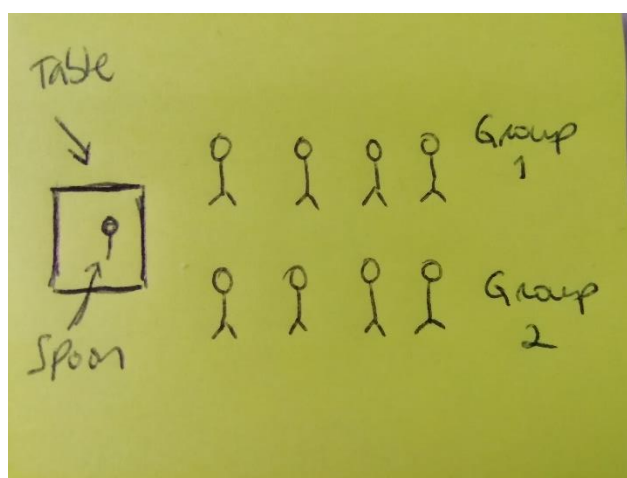 Table
Group
1
Spoon
Group
2